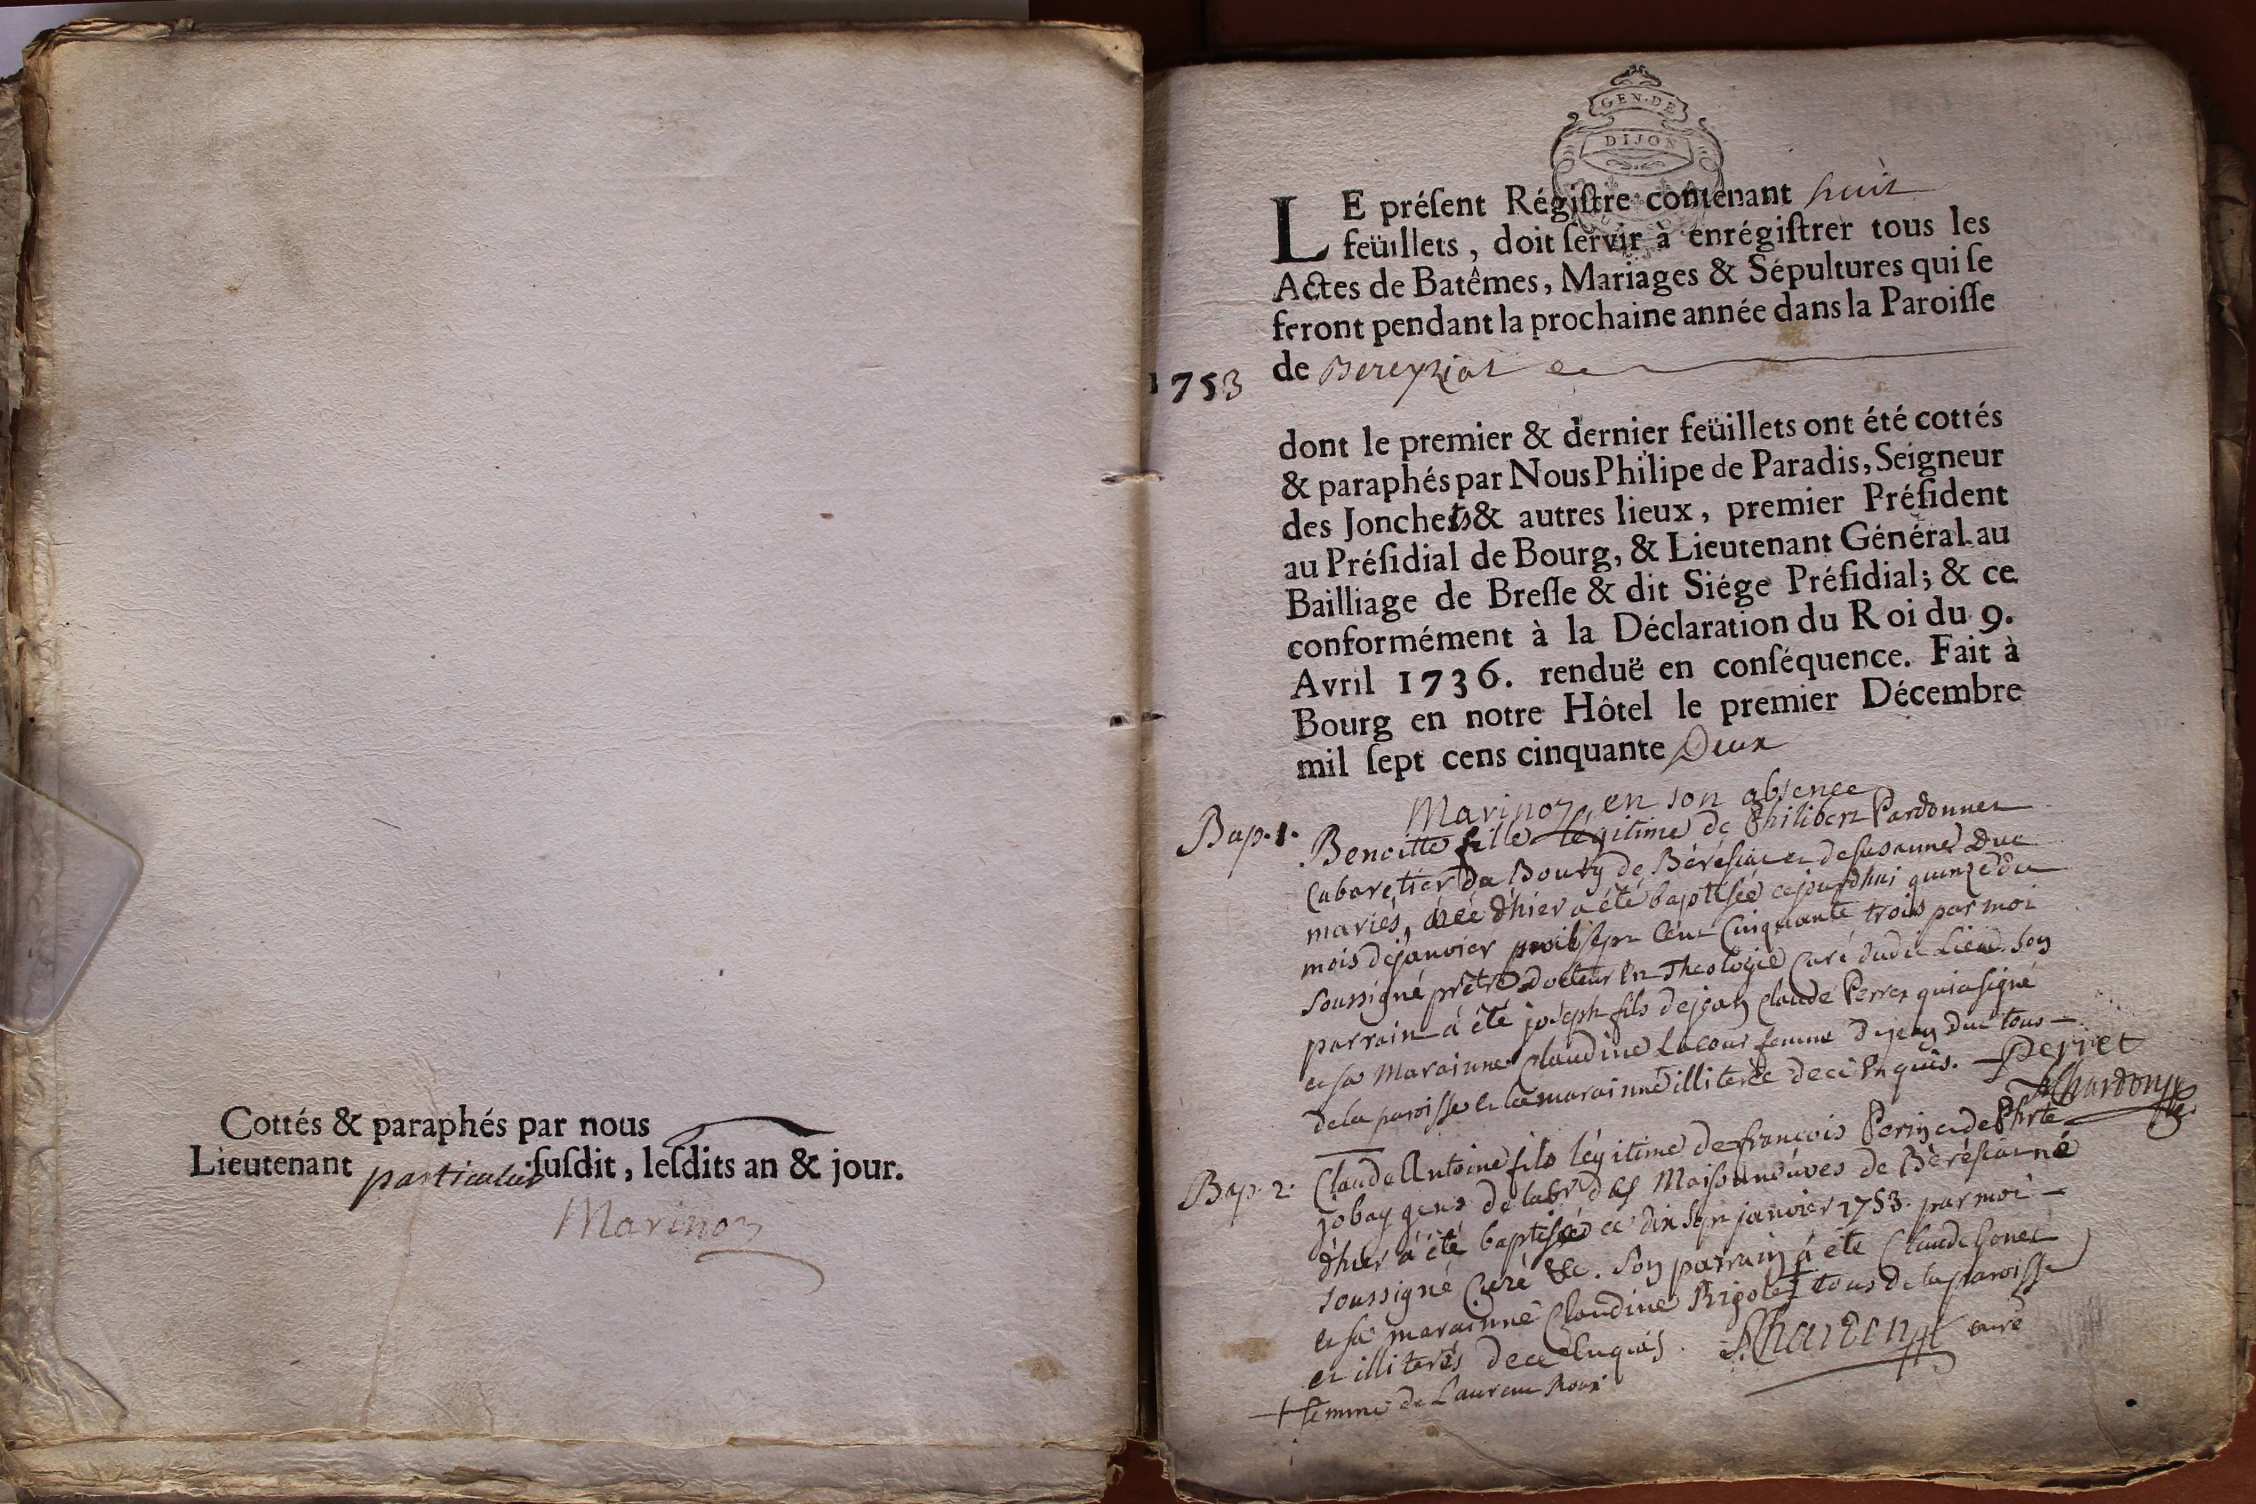 Cottés & paraphés par nous
Lieutenant particulier ſuſdit, leſdits an & jour.
Marinon
GEN·DE
DIJON
LE préſent Régiſtre contenant huit
feüillets, doit ſervir à enrégiſtrer tous les
Actes de Batêmes, Mariages & Sépultures qui ſe
feront pendant la prochaine année dans la Paroiſſe
de Bereyziat
1753
dont le premier & dernier feüillets ont été cottés
& paraphés par Nous Philipe de Paradis, Seigneur
des Jonchets & autres lieux, premier Préſident
au Préſidial de Bourg, & Lieutenant Général au
Bailliage de Breſſe & dit Siége Préſidial; & ce
conformément à la Déclaration du Roi du 9.
Avril 1736. renduë en conſéquence. Fait à
Bourg en notre Hôtel le premier Décembre
mil ſept cens cinquante Deux
Marinon, en son absence
Bap. 1. Benoitte fille légitime de Philibert Pardonnet
Cabaretier du Bourg de Béresiat et de susanne Duc
mariés, née d'hier a été baptisée cejourdhui quinze du
mois de janvier mil sept cent Cinquante trois par moi
soussigné prêtre docteur en Theologie Curé dudit Lieu. son
parrain a été joseph fils de jean Claude Perret qui a signé
et sa Marainne Claudine Lacour femme de jean Duc tous
de la paroisse et la marainne illiterée de ce Enquis. Perret
Chardon
Bap. 2. Claude Antoine fils légitime de françois Perin et de Phrte
jobay gens de labr des Maisonneuves de Bèrésiat né
d'hier a été baptisé ce dix sept janvier 1753. par moi
soussigné Curé &c. son parrain a été Claude Gonet
et sa marainne Claudine Rigolet tous de la paroisse
et illiterés de ce Enquis. Chardon curé
+ femme de Laurent Roux